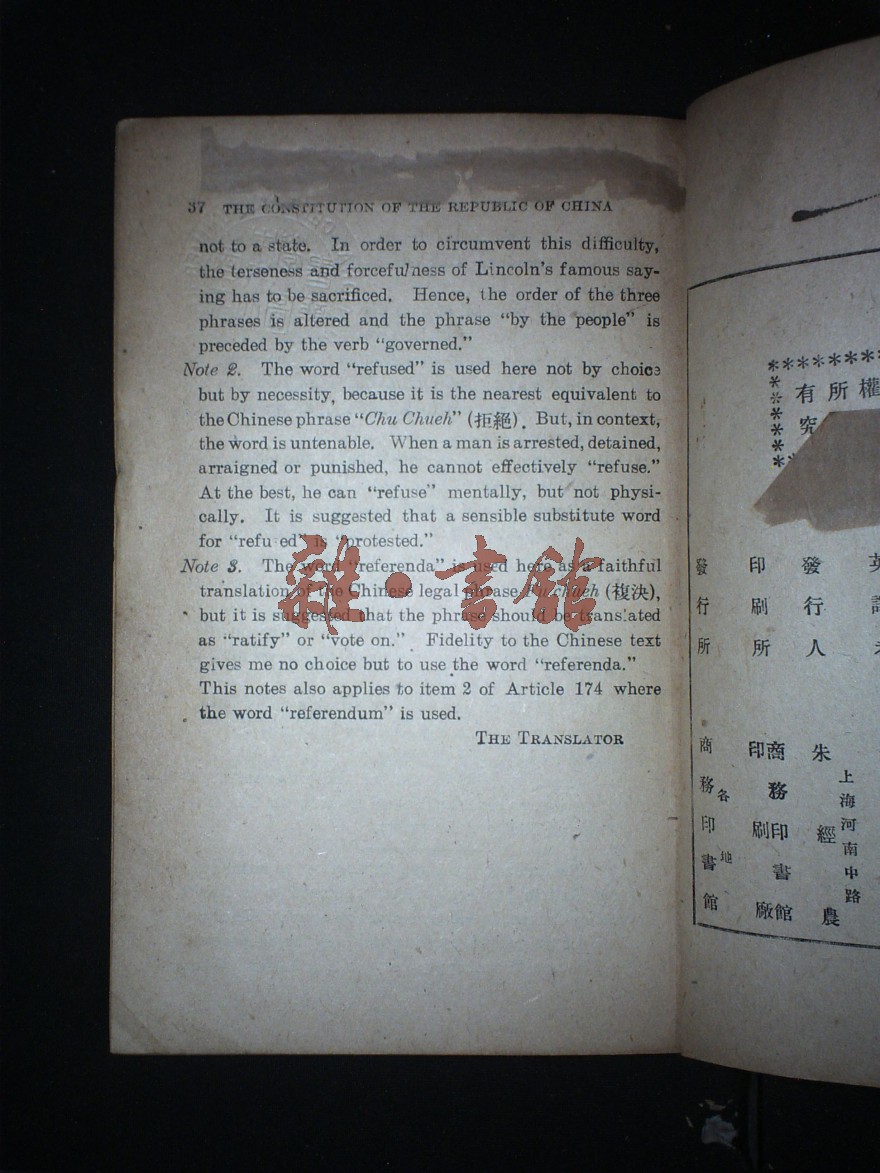 37 THE CONSTITUTION OF THE REPUBLIC OF CHINA
not to a state. In order to circumvent this difficulty,
the terseness and forcefulness of Lincoln's famous say-
ing has to be sacrificed. Hence, the order of the three
phrases is altered and the phrase "by the people" is
preceded by the verb "governed."
Note 2. The word "refused" is used here not by choice
but by necessity, because it is the nearest equivalent to
the Chinese phrase "Chu Chueh" (拒絕). But, in context,
the word is untenable. When a man is arrested, detained,
arraigned or punished, he cannot effectively "refuse."
At the best, he can "refuse" mentally, but not physi-
cally. It is suggested that a sensible substitute word
for "refu ed" is "protested."
Note 3. The word "referenda" is used here as a faithful
translation of the Chinese legal phrase Fu chueh (複決),
but it is suggested that the phrase should be translated
as "ratify" or "vote on." Fidelity to the Chinese text
gives me no choice but to use the word "referenda."
This notes also applies to item 2 of Article 174 where
the word "referendum" is used.
THE TRANSLATOR
雜·書館
權所有
究
英
發行人 朱經農
上海河南中路
印刷所 商務印書館
印刷廠
發行所 商務印書館
各地